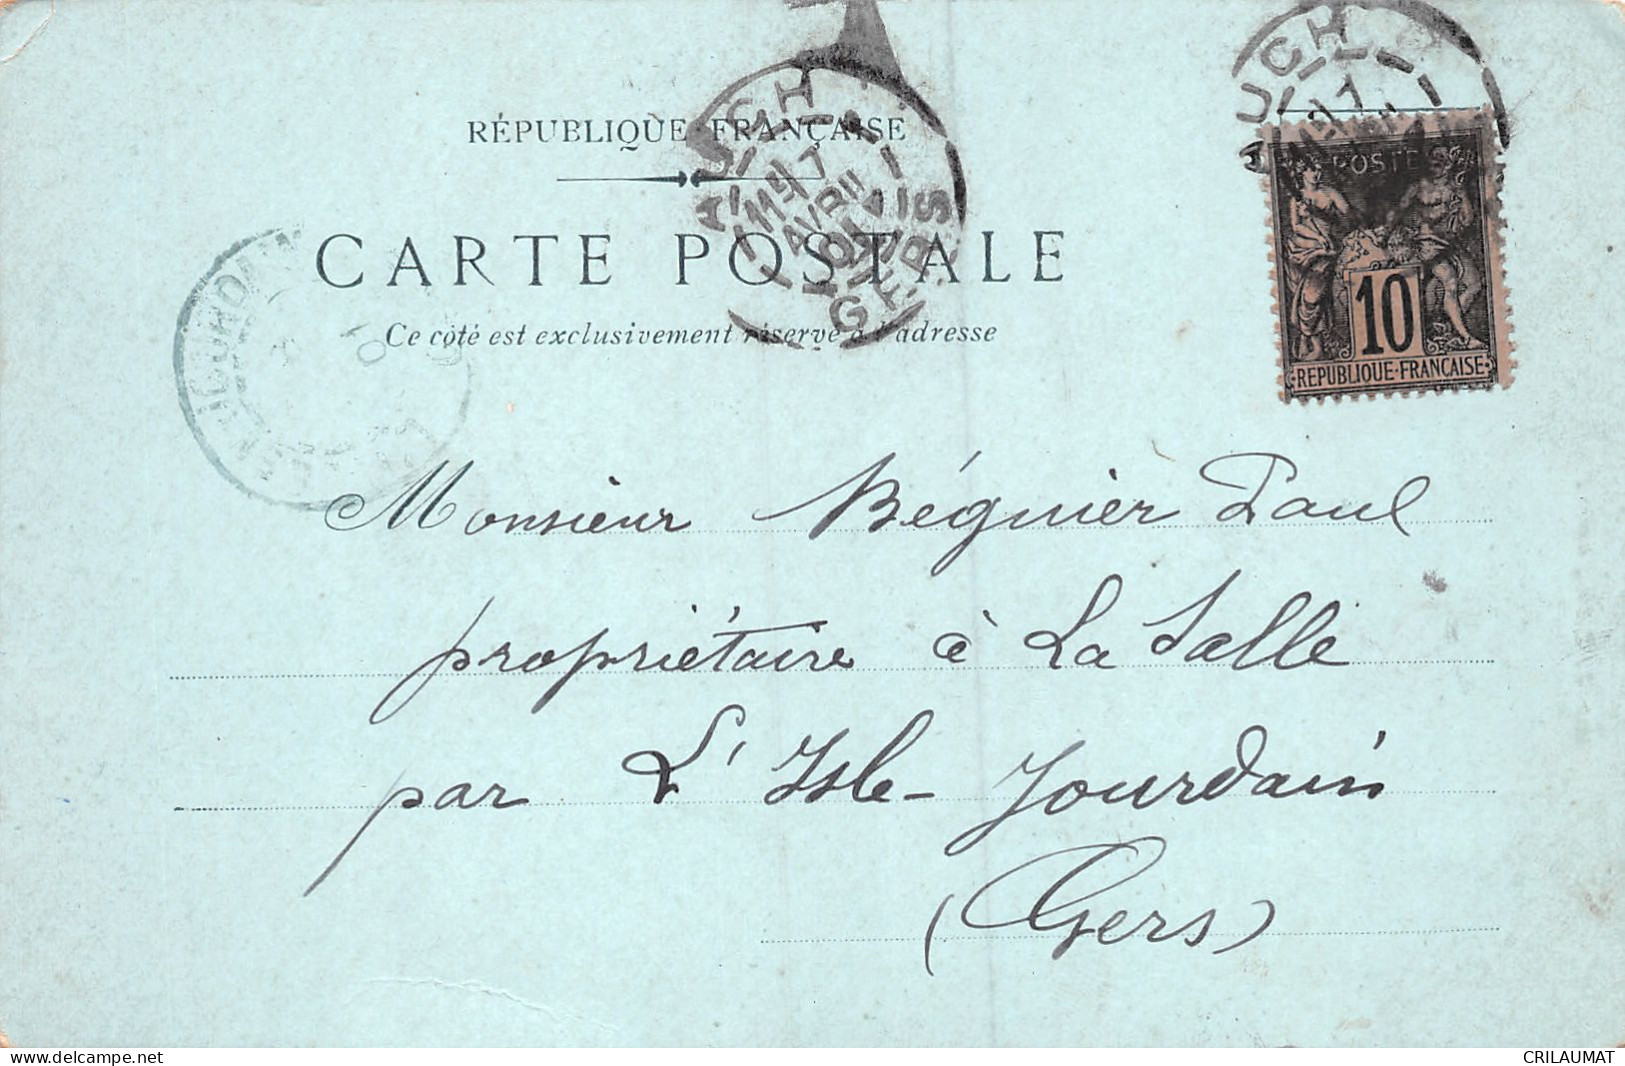 RÉPUBLIQUE FRANÇAISE
CARTE POSTALE
Ce côté est exclusivement réservé à l'adresse
AUCH
AVRIL
GERS
AUCH
POSTES
10
REPUBLIQUE·FRANCAISE
Monsieur Béguier Paul
propriétaire à La Salle
par L'Isle-Jourdain
(Gers)
delcampe.net
CRILAUMAT